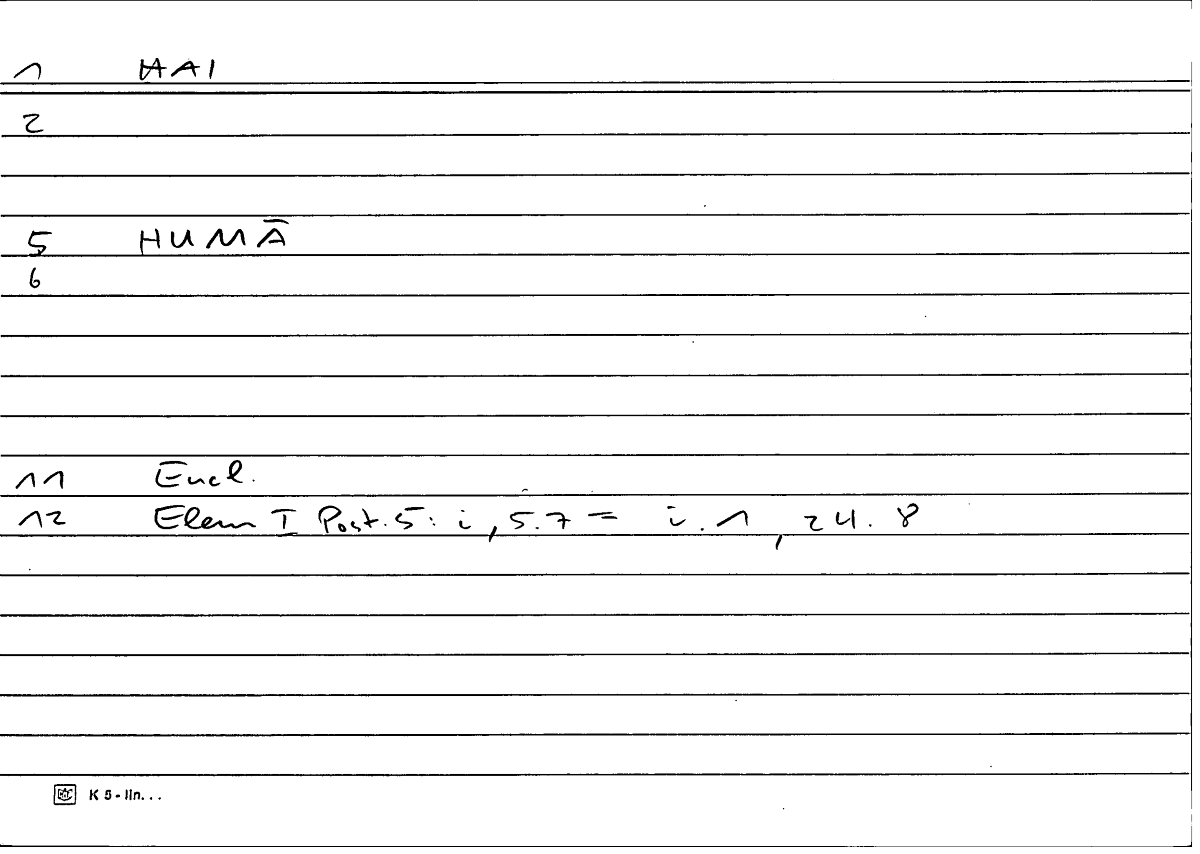 1 HAI
2
5 HUMĀ
6
11 Eucl.
12 Elem I Post. 5: i, 5.7 = i. 1, 24. 8
K 5 - lin...